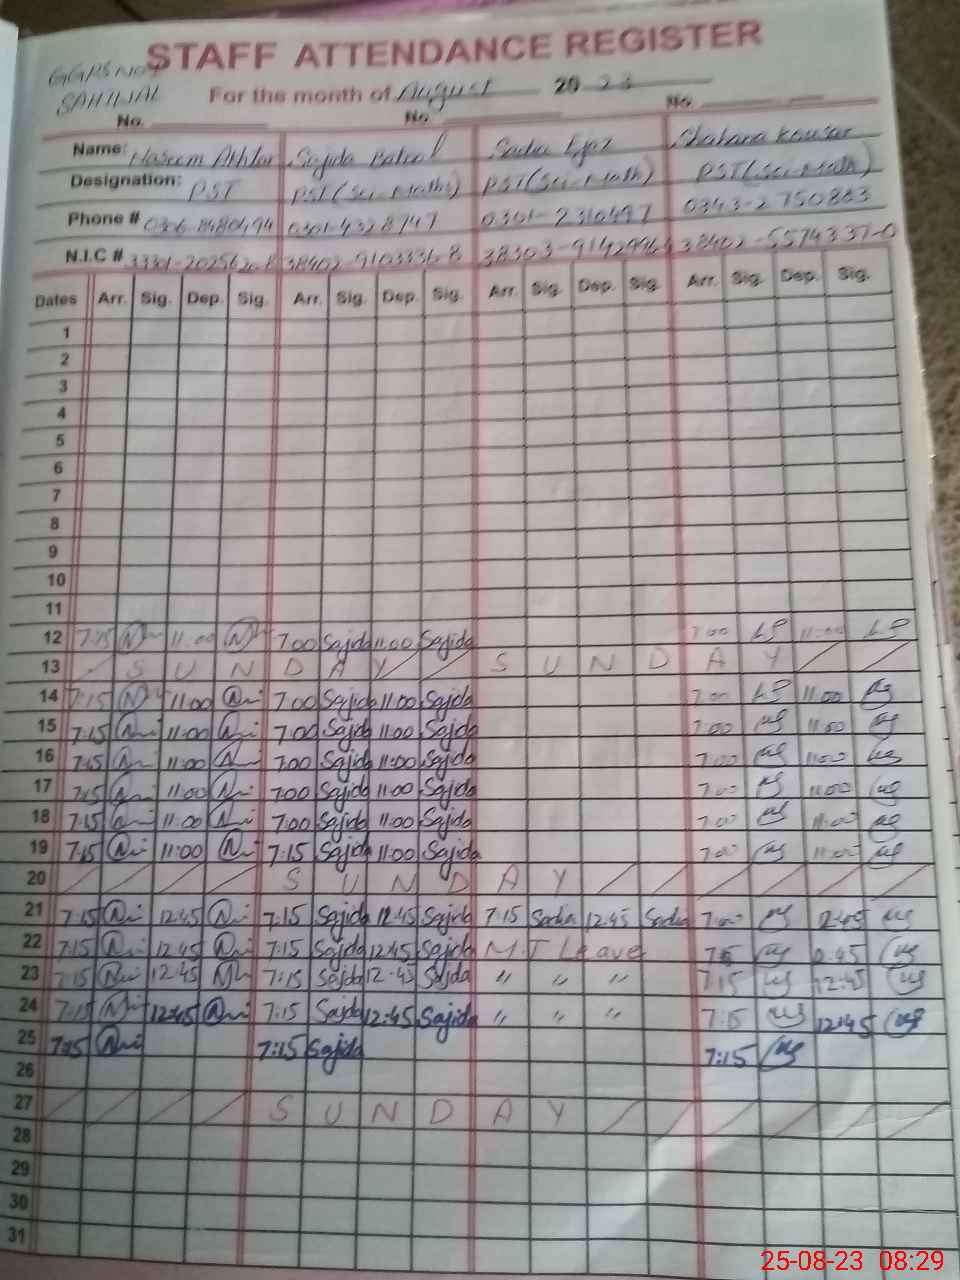 STAFF ATTENDANCE REGISTER
SAHIWAL
For the month of August 2023
No. No. No.
Name: Naseem Akhtar Sajida Batool Sadia Ejaz Shahana Kousar
Designation: PST PST (Sci-Maths) PST (Sci-Math) PST (Sci-Math)
Phone # 0301-4328747 0301-2310497 0343-2750863
N.I.C # 38402-5574337-0
Dates Arr. Sig. Dep. Sig. Arr. Sig. Dep. Sig. Arr. Sig. Dep. Sig. Arr. Sig. Dep. Sig.
1
2
3
4
5
6
7
8
9
10
11
12 7:15 11:00 7:00 Sajida 11:00 Sajida 7:00 11:00
13 S U N D A Y S U N D A Y
14 7:15 11:00 7:00 Sajida 11:00 Sajida 7:00 11:00
15 7:15 11:00 7:00 Sajida 11:00 Sajida 7:00 11:00
16 7:15 11:00 7:00 Sajida 11:00 Sajida 7:00 11:00
17 7:15 11:00 7:00 Sajida 11:00 Sajida 7:00 11:00
18 7:15 11:00 7:00 Sajida 11:00 Sajida 7:00 11:00
19 7:15 11:00 7:15 Sajida 11:00 Sajida 7:00 11:00
20 S U N D A Y
21 7:15 12:45 7:15 Sajida 12:45 Sajida 7:15 Sadia 12:45 Sadia 7:00 12:45
22 7:15 12:45 7:15 Sajida 12:45 Sajida Leave 7:15 12:45
23 7:15 12:45 7:15 Sajida 12:45 Sajida " " " 7:15 12:45
24 7:15 12:45 7:15 Sajida 12:45 Sajida " " " 7:15 12:45
25 7:15 7:15 Sajida 7:15
26
27 S U N D A Y
28
29
30
31
25-08-23 08:29